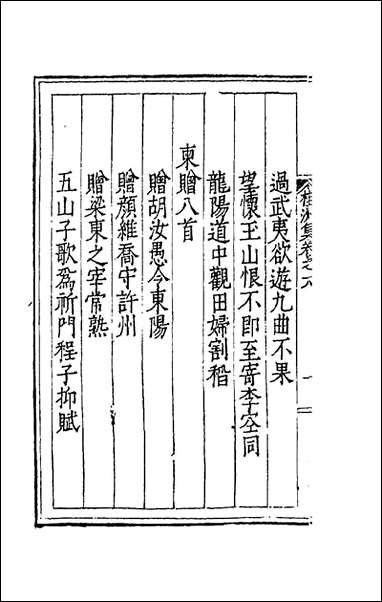 過武夷欲遊九曲不果
望懷玉山恨不即至寄李空同
龍陽道中觀田婦割稻
柬贈八首
贈胡汝愚令東陽
贈顏維喬守許州
贈梁東之宰常熟
五山子歌為祈門程子抑賦